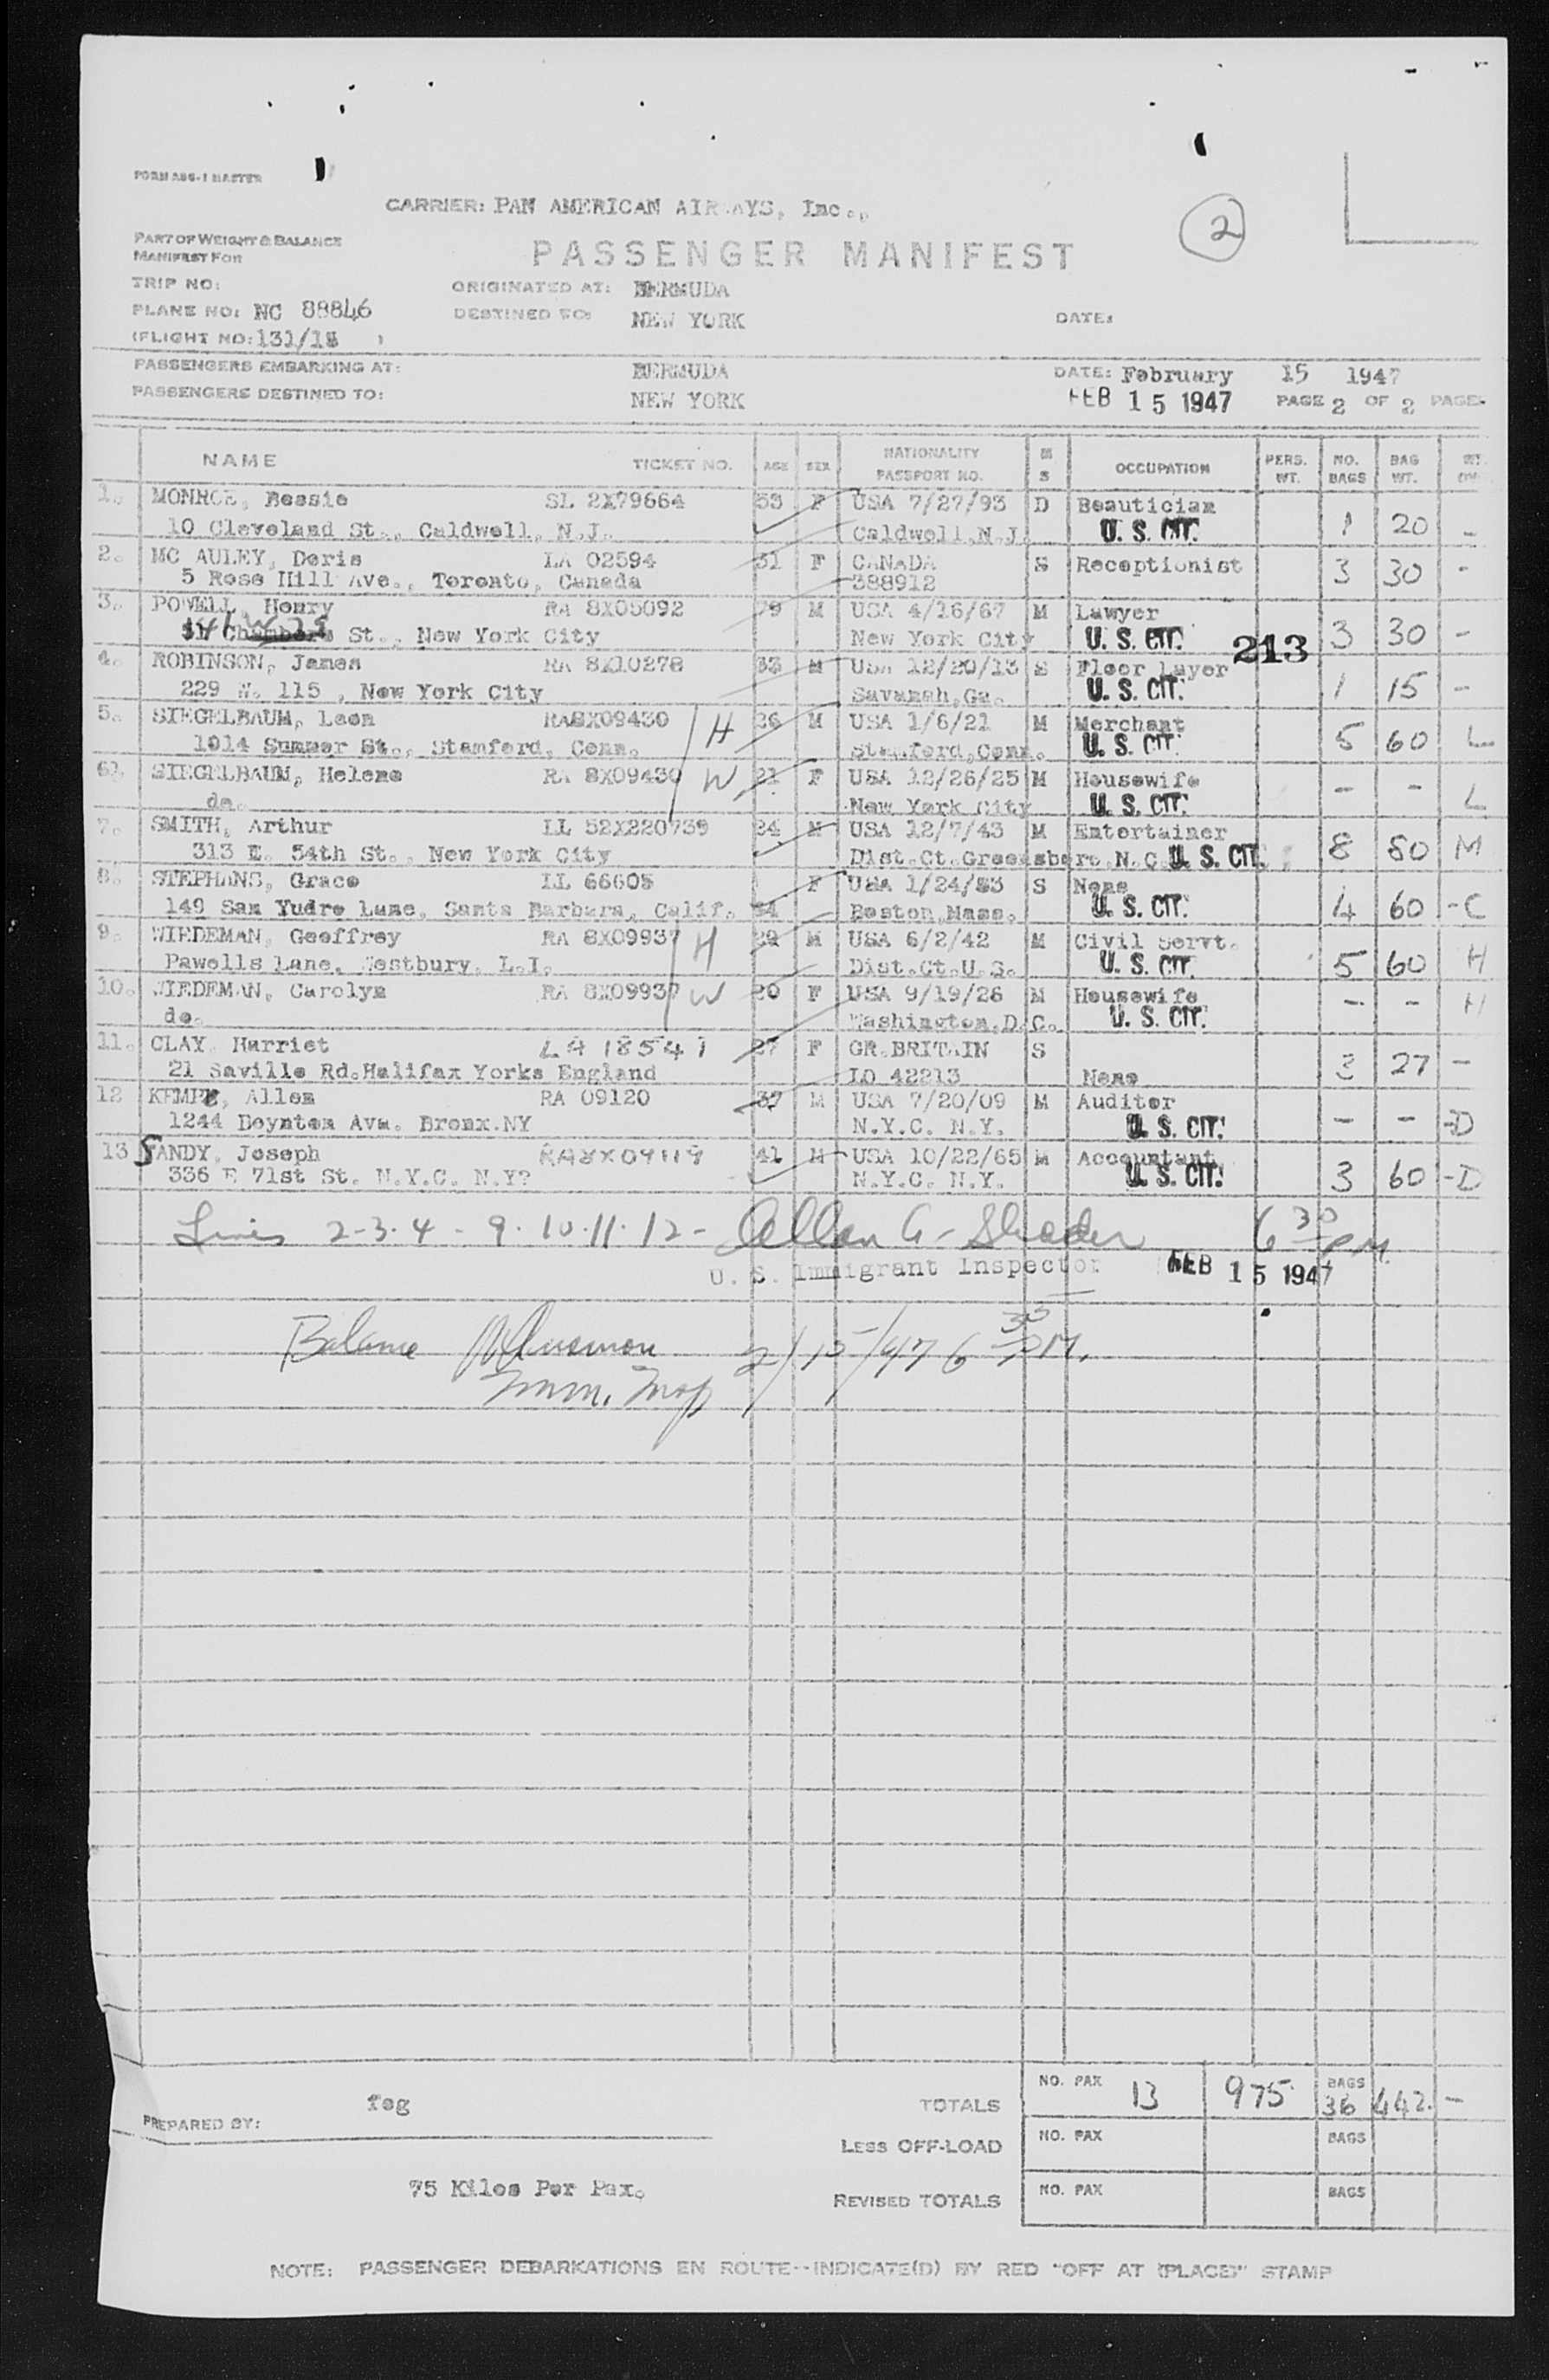 FORM ABG-1 MASTER
CARRIER: PAN AMERICAN AIRWAYS, Inc.,
2
PART OF WEIGHT & BALANCE
MANIFEST FOR
PASSENGER MANIFEST
TRIP NO:
ORIGINATED AT: BERMUDA
PLANE NO: NC 88846
DESTINED TO: NEW YORK
DATE:
(FLIGHT NO: 131/15 )
PASSENGERS EMBARKING AT: BERMUDA
DATE: February 15 1947
PASSENGERS DESTINED TO: NEW YORK
FEB 15 1947 PAGE 2 OF 2 PAGES
NAME TICKET NO. AGE SEX NATIONALITY PASSPORT NO. M S OCCUPATION PERS. WT. NO. BAGS BAG WT.
1. MONROE, Bessie SL 2X79664 53 F USA 7/27/93 D Beautician
10 Cleveland St., Caldwell, N.J. Caldwell,N.J. U. S. CIT. 1 20 -
2. MC AULEY, Doris LA 02594 31 F CANADA S Receptionist
5 Rose Hill Ave., Toronto, Canada 388912 3 30 -
3. POWELL, Henry RA 8X05092 79 M USA 4/16/67 M Lawyer
St., New York City New York City U. S. CIT. 213 3 30 -
4. ROBINSON, James RA 8X10278 33 M USA 12/20/13 S Floor Layer
229 W. 115 , New York City Savanah,Ga. U. S. CIT. 1 15 -
5. SIEGELBAUM, Leon RA8X09430 H 26 M USA 1/6/21 M Merchant
1014 Summer St., Stamford, Conn. Stamford,Conn. U. S. CIT. 5 60 L
6. SIEGELBAUM, Helene RA 8X09430 W 21 F USA 12/26/25 M Housewife
do. New York City U. S. CIT. - - L
7. SMITH, Arthur LL 52X220739 24 M USA 12/7/43 M Entertainer
313 E. 54th St., New York City Dist.Ct.Greensboro,N.C. U. S. CIT. 8 80 M
8. STEPHANS, Grace LL 66605 F USA 1/24/83 S None
149 San Yudro Lane, Santa Barbara, Calif. 64 Boston,Mass. U. S. CIT. 4 60 - C
9. WIEDEMAN, Geoffrey RA 8X09937 H 29 M USA 6/2/42 M Civil Servt.
Pawells Lane, Westbury, L.I. Dist.Ct.U.S. U. S. CIT. 5 60 H
10. WIEDEMAN, Carolyn RA 8X09937 W 20 F USA 9/19/26 M Housewife
do. Washington,D.C. U. S. CIT. - - H
11. CLAY, Harriet LA 18541 27 F GR.BRITAIN S
21 Saville Rd.Halifax Yorks England LO 42213 None 3 27 -
12 KEMPE, Allen RA 09120 37 M USA 7/20/09 M Auditor
1244 Boynton Ave. Bronx.NY N.Y.C. N.Y. U. S. CIT. - - -D
13 SANDY, Joseph RA8X09119 41 M USA 10/22/65 M Accountant
336 E 71st St. N.Y.C. N.Y? N.Y.C. N.Y. U. S. CIT. 3 60 -D
Lines 2-3-4-9-10-11-12- Allan G. Shader 6 30 PM
U. S. Immigrant Inspector FEB 15 1947
Balance 2/15/47 6 30 PM.
Imm. Insp
TOTALS NO. PAX 13 975 BAGS 36 442. -
PREPARED BY: fog
LESS OFF-LOAD NO. PAX BAGS
75 Kilos Per Pax.
REVISED TOTALS NO. PAX BAGS
NOTE: PASSENGER DEBARKATIONS EN ROUTE--INDICATE(D) BY RED "OFF AT (PLACE)" STAMP